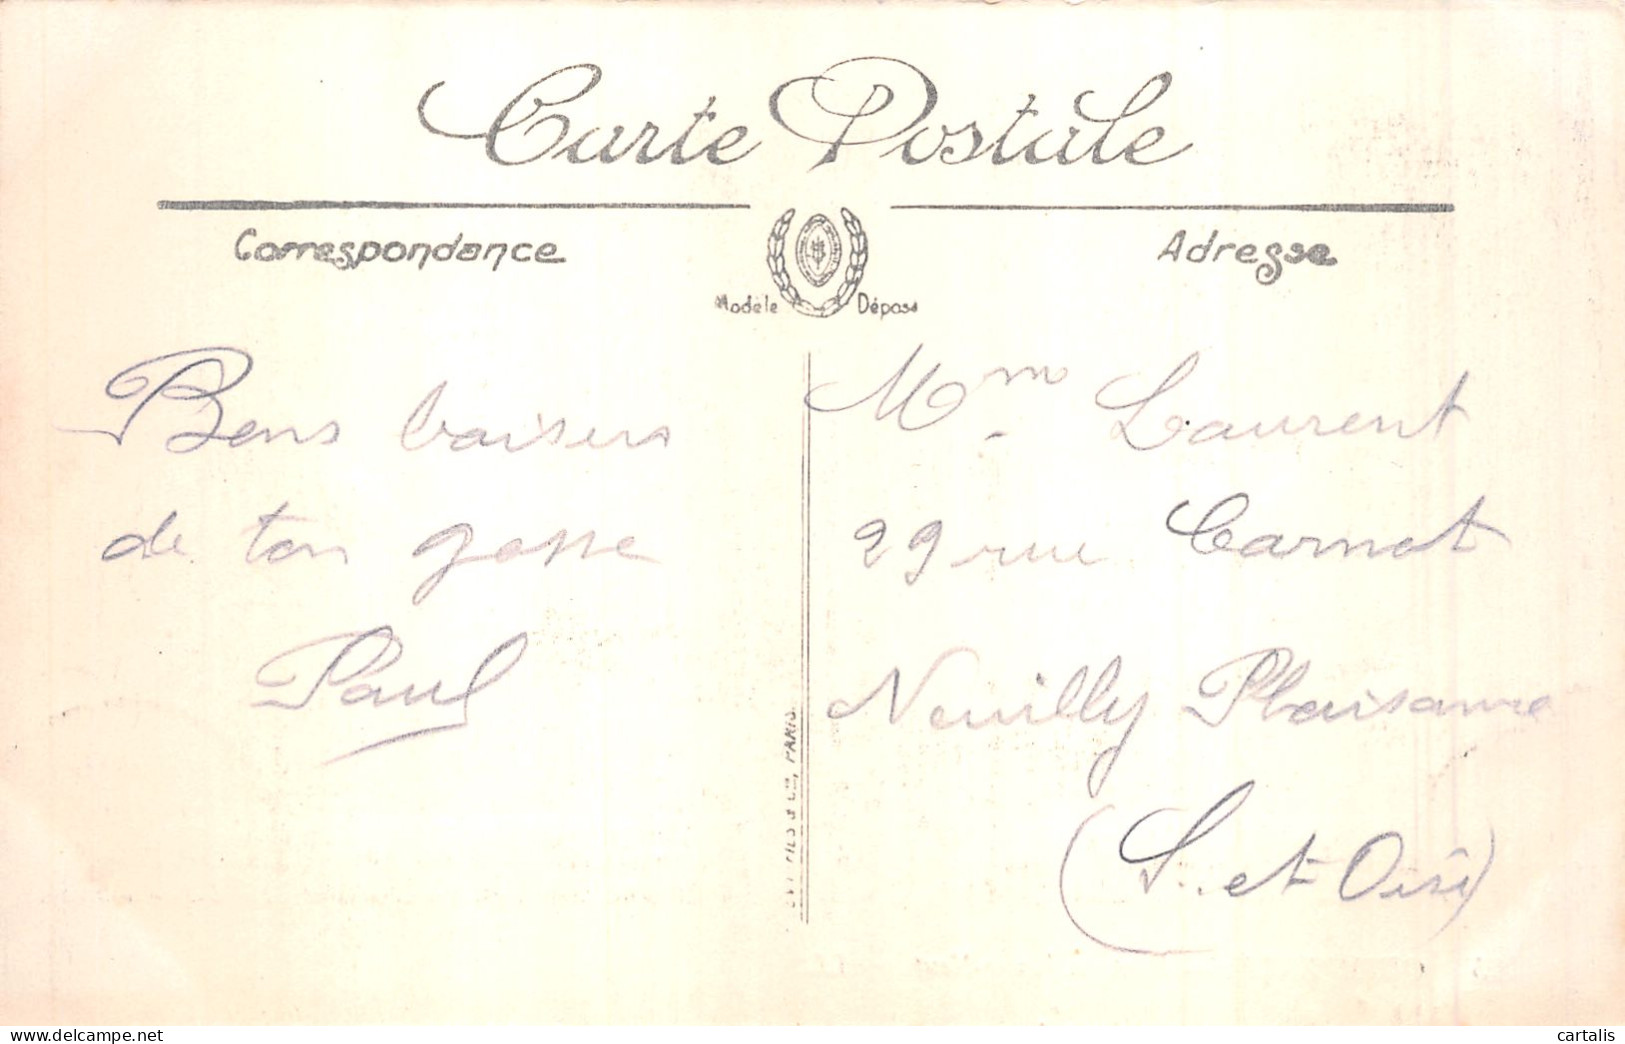 Carte Postale
Correspondance
Adresse
Modèle Déposé
Bons baisers
de ton gosse
Paul
Mme Laurent
29 rue Carnot
Neuilly Plaisance
(S. et Oise)
FILS & Cie, PARIS.
cartalis